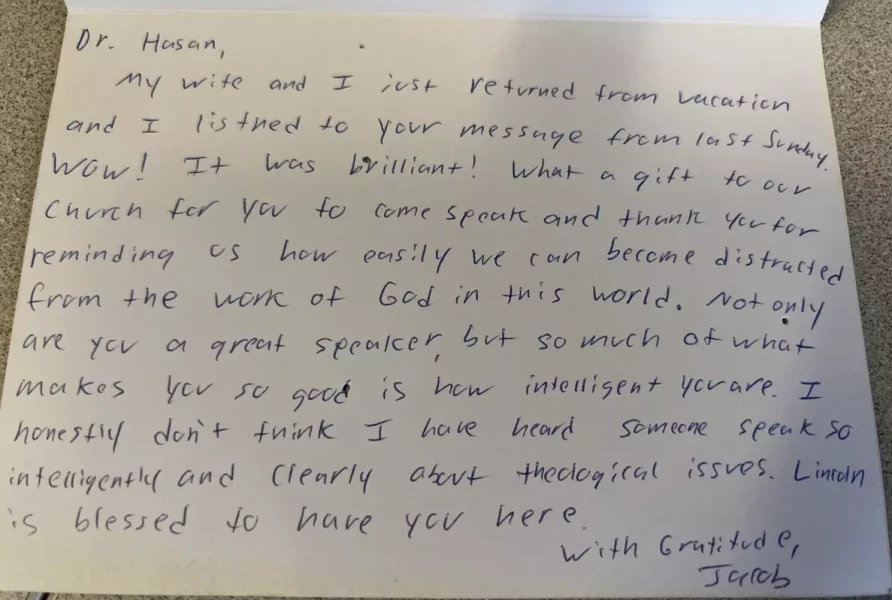 Dr. Hasan,
My wife and I just returned from vacation
and I listned to your message from last Sunday.
Wow! It was brilliant! What a gift to our
Church for you to come speak and thank you for
reminding us how easily we can become distracted
from the work of God in this world. Not only
are you a great speaker, but so much of what
makes you so good is how intelligent you are. I
honestly don't think I have heard someone speak so
intelligently and clearly about theological issues. Lincoln
is blessed to have you here.
With Gratitude,
Jacob